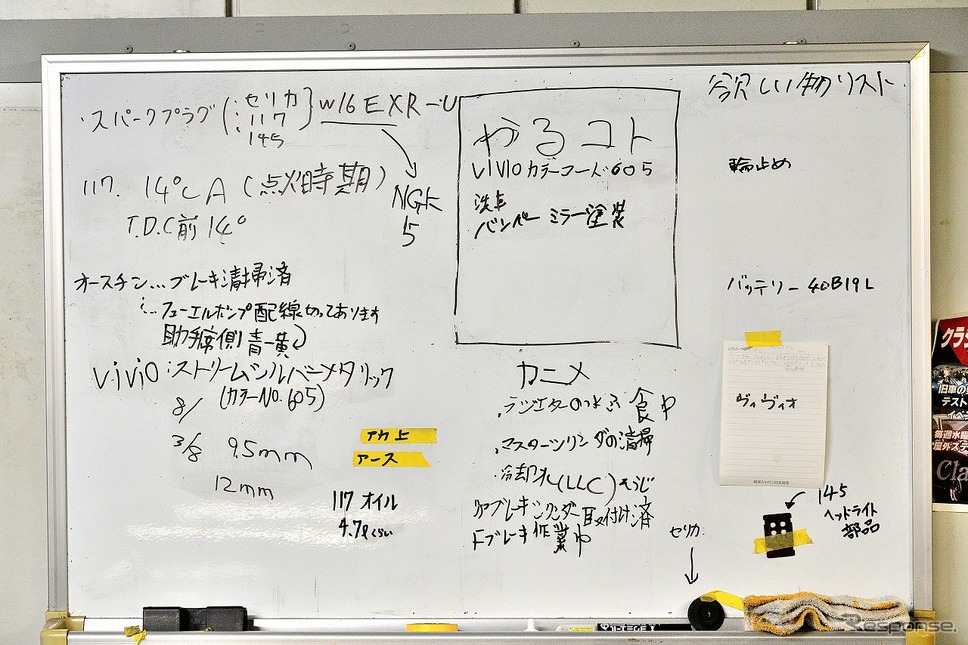 ・スパークプラグ(:セリカ
:117
:145} W16EXR-U
NGK
5
117. 14°CA(点火時期)
T.D.C前14°
オースチン...ブレーキ清掃済
...フューエルポンプ配線切ってあります
助手席側 青-黄
ViViO:ストリームシルバーメタリック
(カラーNO.605)
8/
3/8 9.5mm
12mm
アカ上
アース
117 オイル
4.7ℓくらい
やるコト
ViViOカラーコード605
洗車
バンパー ミラー塗装
カニメ
.ラジエターの
.マスターシリンダの清掃
.冷却水(LLC)そうじ
リアブレーキシリンダー取付け済
Fブレーキ作業中
欲しい物リスト
輪止め
バッテリー 40B19L
ヴィヴィオ
145
ヘッドライト
部品
セリカ
クラシ
旧車の
テスト
イベ
毎週水曜
屋外ステ
Cla
Response.